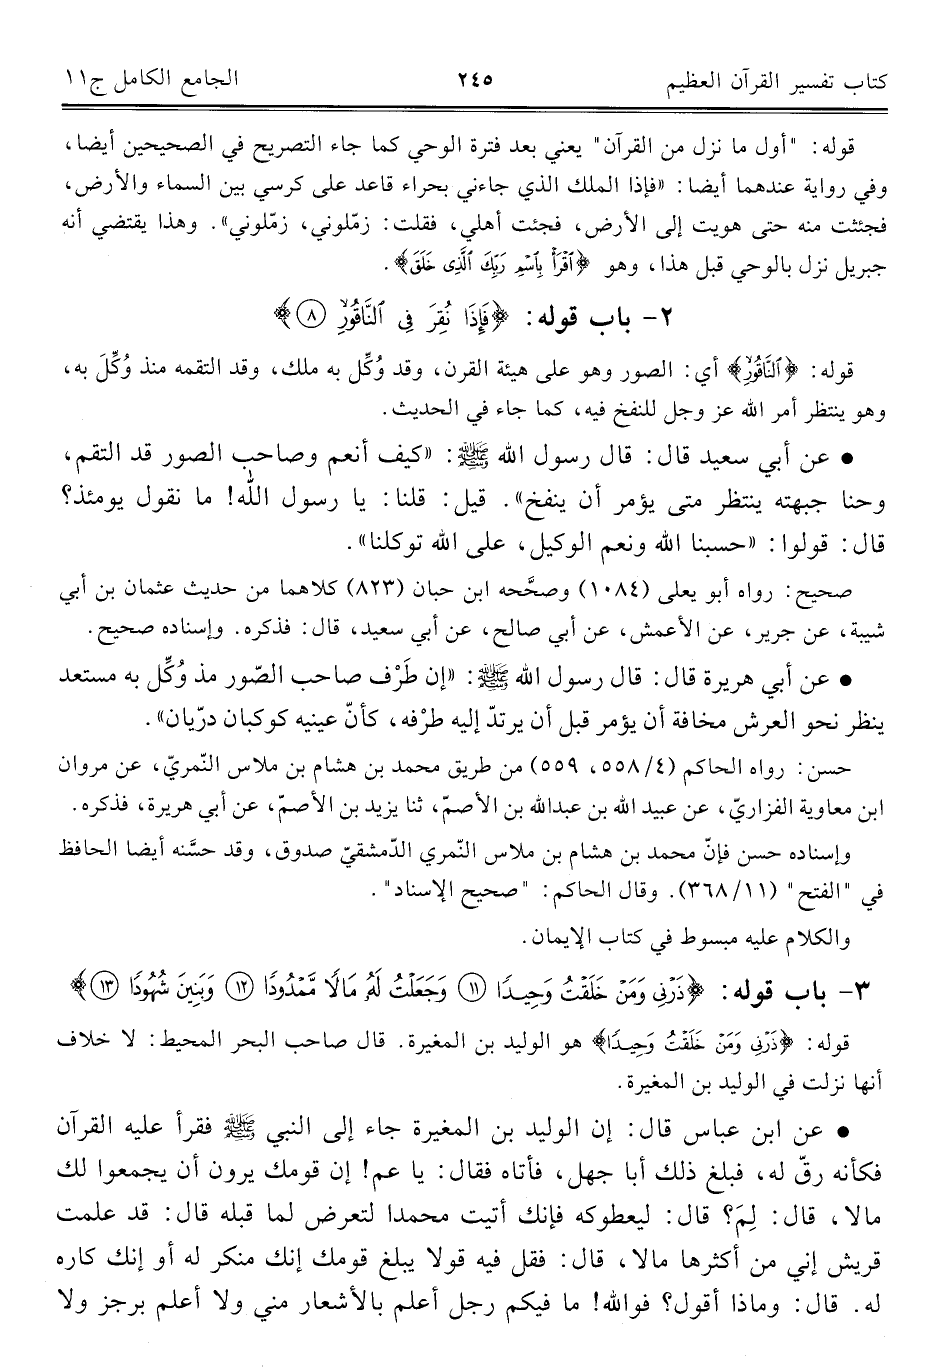 كتاب تفسير القرآن العظيم ٢٤٥ الجامع الكامل ج١١
قوله: "أول ما نزل من القرآن" يعني بعد فترة الوحي كما جاء التصريح في الصحيحين أيضا،
وفي رواية عندهما أيضا: «فإذا الملك الذي جاءني بحراء قاعد على كرسي بين السماء والأرض،
فجئثت منه حتى هويت إلى الأرض، فجئت أهلي، فقلت: زمّلوني، زمّلوني». وهذا يقتضي أنه
جبريل نزل بالوحي قبل هذا، وهو ﴿ٱقۡرَأۡ بِٱسۡمِ رَبِّكَ ٱلَّذِى خَلَقَ﴾.
٢- باب قوله: ﴿فَإِذَا نُقِرَ فِى ٱلنَّاقُورِ ۝٨﴾
قوله: ﴿ٱلنَّاقُورِ﴾ أي: الصور وهو على هيئة القرن، وقد وُكِّل به ملك، وقد التقمه منذ وُكِّلَ به،
وهو ينتظر أمر الله عز وجل للنفخ فيه، كما جاء في الحديث.
• عن أبي سعيد قال: قال رسول الله ﷺ: «كيف أنعم وصاحب الصور قد التقم،
وحنا جبهته ينتظر متى يؤمر أن ينفخ». قيل: قلنا: يا رسول الله! ما نقول يومئذ؟
قال: قولوا: «حسبنا الله ونعم الوكيل، على الله توكلنا».
صحيح: رواه أبو يعلى (١٠٨٤) وصحَّحه ابن حبان (٨٢٣) كلاهما من حديث عثمان بن أبي
شيبة، عن جرير، عن الأعمش، عن أبي صالح، عن أبي سعيد، قال: فذكره. وإسناده صحيح.
• عن أبي هريرة قال: قال رسول الله ﷺ: «إن طَرْف صاحب الصّور مذ وُكِّل به مستعد
ينظر نحو العرش مخافة أن يؤمر قبل أن يرتدّ إليه طرْفه، كأنّ عينيه كوكبان درّيان».
حسن: رواه الحاكم (٤/ ٥٥٨، ٥٥٩) من طريق محمد بن هشام بن ملاس النّمريّ، عن مروان
ابن معاوية الفزاريّ، عن عبيد الله بن عبدالله بن الأصمّ، ثنا يزيد بن الأصمّ، عن أبي هريرة، فذكره.
وإسناده حسن فإنّ محمد بن هشام بن ملاس النّمري الدّمشقيّ صدوق، وقد حسَّنه أيضا الحافظ
في "الفتح" (١١/ ٣٦٨). وقال الحاكم: "صحيح الإسناد".
والكلام عليه مبسوط في كتاب الإيمان.
٣- باب قوله: ﴿ذَرۡنِى وَمَنۡ خَلَقۡتُ وَحِيدًا ۝١١ وَجَعَلۡتُ لَهُۥ مَالًا مَّمۡدُودًا ۝١٢ وَبَنِينَ شُهُودًا ۝١٣﴾
قوله: ﴿ذَرۡنِى وَمَنۡ خَلَقۡتُ وَحِيدًا﴾ هو الوليد بن المغيرة. قال صاحب البحر المحيط: لا خلاف
أنها نزلت في الوليد بن المغيرة.
• عن ابن عباس قال: إن الوليد بن المغيرة جاء إلى النبي ﷺ فقرأ عليه القرآن
فكأنه رقّ له، فبلغ ذلك أبا جهل، فأتاه فقال: يا عم! إن قومك يرون أن يجمعوا لك
مالا، قال: لِمَ؟ قال: ليعطوكه فإنك أتيت محمدا لتعرض لما قبله قال: قد علمت
قريش إني من أكثرها مالا، قال: فقل فيه قولا يبلغ قومك إنك منكر له أو إنك كاره
له. قال: وماذا أقول؟ فوالله! ما فيكم رجل أعلم بالأشعار مني ولا أعلم برجز ولا